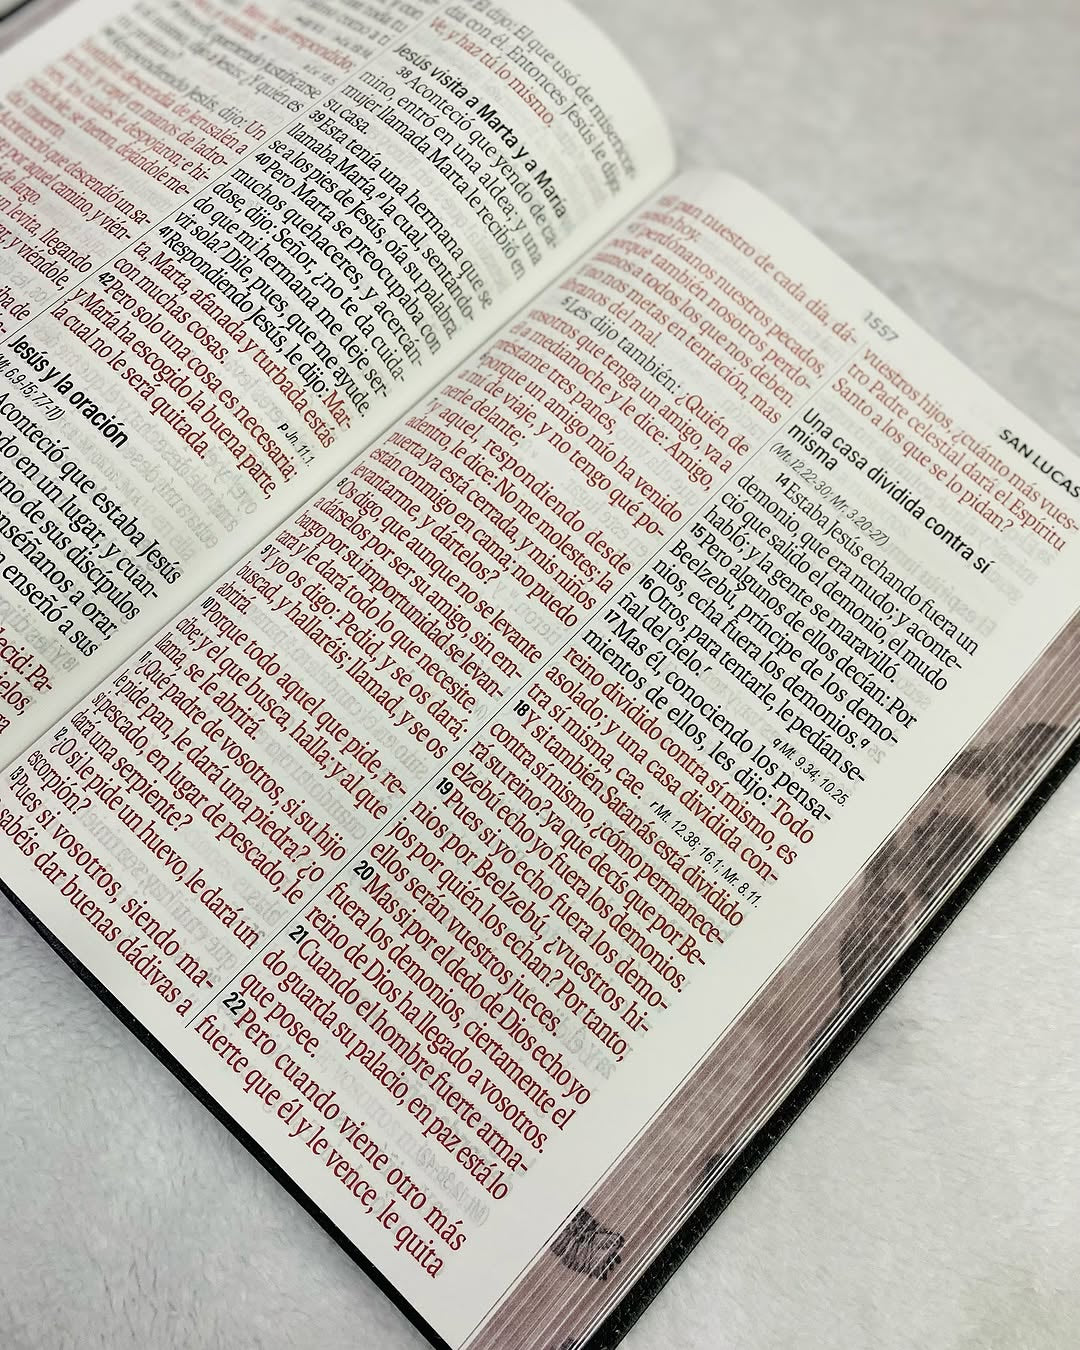 justificarse
a Jesús: ¿Y quién es
Respondiendo Jesús, dijo: Un
descendía de Jerusalén a
y cayó en manos de ladro-
los cuales le despojaron; e hi-
se fueron, dejándole me-
muerto.
Aconteció que descendió un sa-
por aquel camino, y vién-
de largo.
un levita, llegando
y viéndole,
iba de
Jesús y la oración
(Mt. 6.9-15; 7.7-11)
Aconteció que estaba Jesús
do en un lugar, y cuan-
uno de sus discípulos
enséñanos a orar,
n enseñó a sus
decid: Pa-
ielos,
Él dijo: El que usó de misericor-
dia con él. Entonces Jesús le dijo:
Ve, y haz tú lo mismo.
Jesús visita a Marta y a María
38 Aconteció que yendo de ca-
mino, entró en una aldea; y una
mujer llamada Marta le recibió en
su casa.
39 Esta tenía una hermana que se
llamaba María,ᵖ la cual, sentándo-
se a los pies de Jesús, oía su palabra.
40 Pero Marta se preocupaba con
muchos quehaceres, y acercán-
dose, dijo: Señor, ¿no te da cuida-
do que mi hermana me deje ser-
vir sola? Dile, pues, que me ayude.
41 Respondiendo Jesús, le dijo: Mar-
ta, Marta, afanada y turbada estás
con muchas cosas. p Jn. 11.1.
42 Pero solo una cosa es necesaria;
y María ha escogido la buena parte,
la cual no le será quitada.
1557
SAN LUCAS
pan nuestro de cada día, dá-
noslo hoy.
4 Y perdónanos nuestros pecados,
porque también nosotros perdo-
namos a todos los que nos deben.
Y no nos metas en tentación, mas
líbranos del mal.
5 Les dijo también: ¿Quién de
vosotros que tenga un amigo, va a
él a medianoche y le dice: Amigo,
préstame tres panes,
6 porque un amigo mío ha venido
a mí de viaje, y no tengo qué po-
nerle delante;
7 y aquel, respondiendo desde
adentro, le dice: No me molestes; la
puerta ya está cerrada, y mis niños
están conmigo en cama; no puedo
levantarme, y dártelos?
8 Os digo, que aunque no se levante
a dárselos por ser su amigo, sin em-
bargo por su importunidad se levan-
tará y le dará todo lo que necesite.
9 Y yo os digo: Pedid, y se os dará;
buscad, y hallaréis; llamad, y se os
abrirá.
10 Porque todo aquel que pide, re-
cibe; y el que busca, halla; y al que
llama, se le abrirá.
11 ¿Qué padre de vosotros, si su hijo
le pide pan, le dará una piedra? ¿o
si pescado, en lugar de pescado, le
dará una serpiente?
12 ¿O si le pide un huevo, le dará un
escorpión?
13 Pues si vosotros, siendo ma-
sabéis dar buenas dádivas a
vuestros hijos, ¿cuánto más vues-
tro Padre celestial dará el Espíritu
Santo a los que se lo pidan?
Una casa dividida contra sí
misma
(Mt. 12.22-30; Mr. 3.20-27)
14 Estaba Jesús echando fuera un
demonio, que era mudo; y aconte-
ció que salido el demonio, el mudo
habló; y la gente se maravilló.
15 Pero algunos de ellos decían: Por
Beelzebú, príncipe de los demo-
nios, echa fuera los demonios.q
16 Otros, para tentarle, le pedían se-
ñal del cielo.r q Mt. 9.34; 10.25.
17 Mas él, conociendo los pensa-
mientos de ellos, les dijo: Todo
reino dividido contra sí mismo, es
asolado; y una casa dividida con-
tra sí misma, cae. r Mt. 12.38; 16.1; Mr. 8.11.
18 Y si también Satanás está dividido
contra sí mismo, ¿cómo permanece-
rá su reino? ya que decís que por Be-
elzebú echo yo fuera los demonios.
19 Pues si yo echo fuera los demo-
nios por Beelzebú, ¿vuestros hi-
jos por quién los echan? Por tanto,
ellos serán vuestros jueces.
20 Mas si por el dedo de Dios echo yo
fuera los demonios, ciertamente el
reino de Dios ha llegado a vosotros.
21 Cuando el hombre fuerte arma-
do guarda su palacio, en paz está lo
que posee.
22 Pero cuando viene otro más
fuerte que él y le vence, le quita